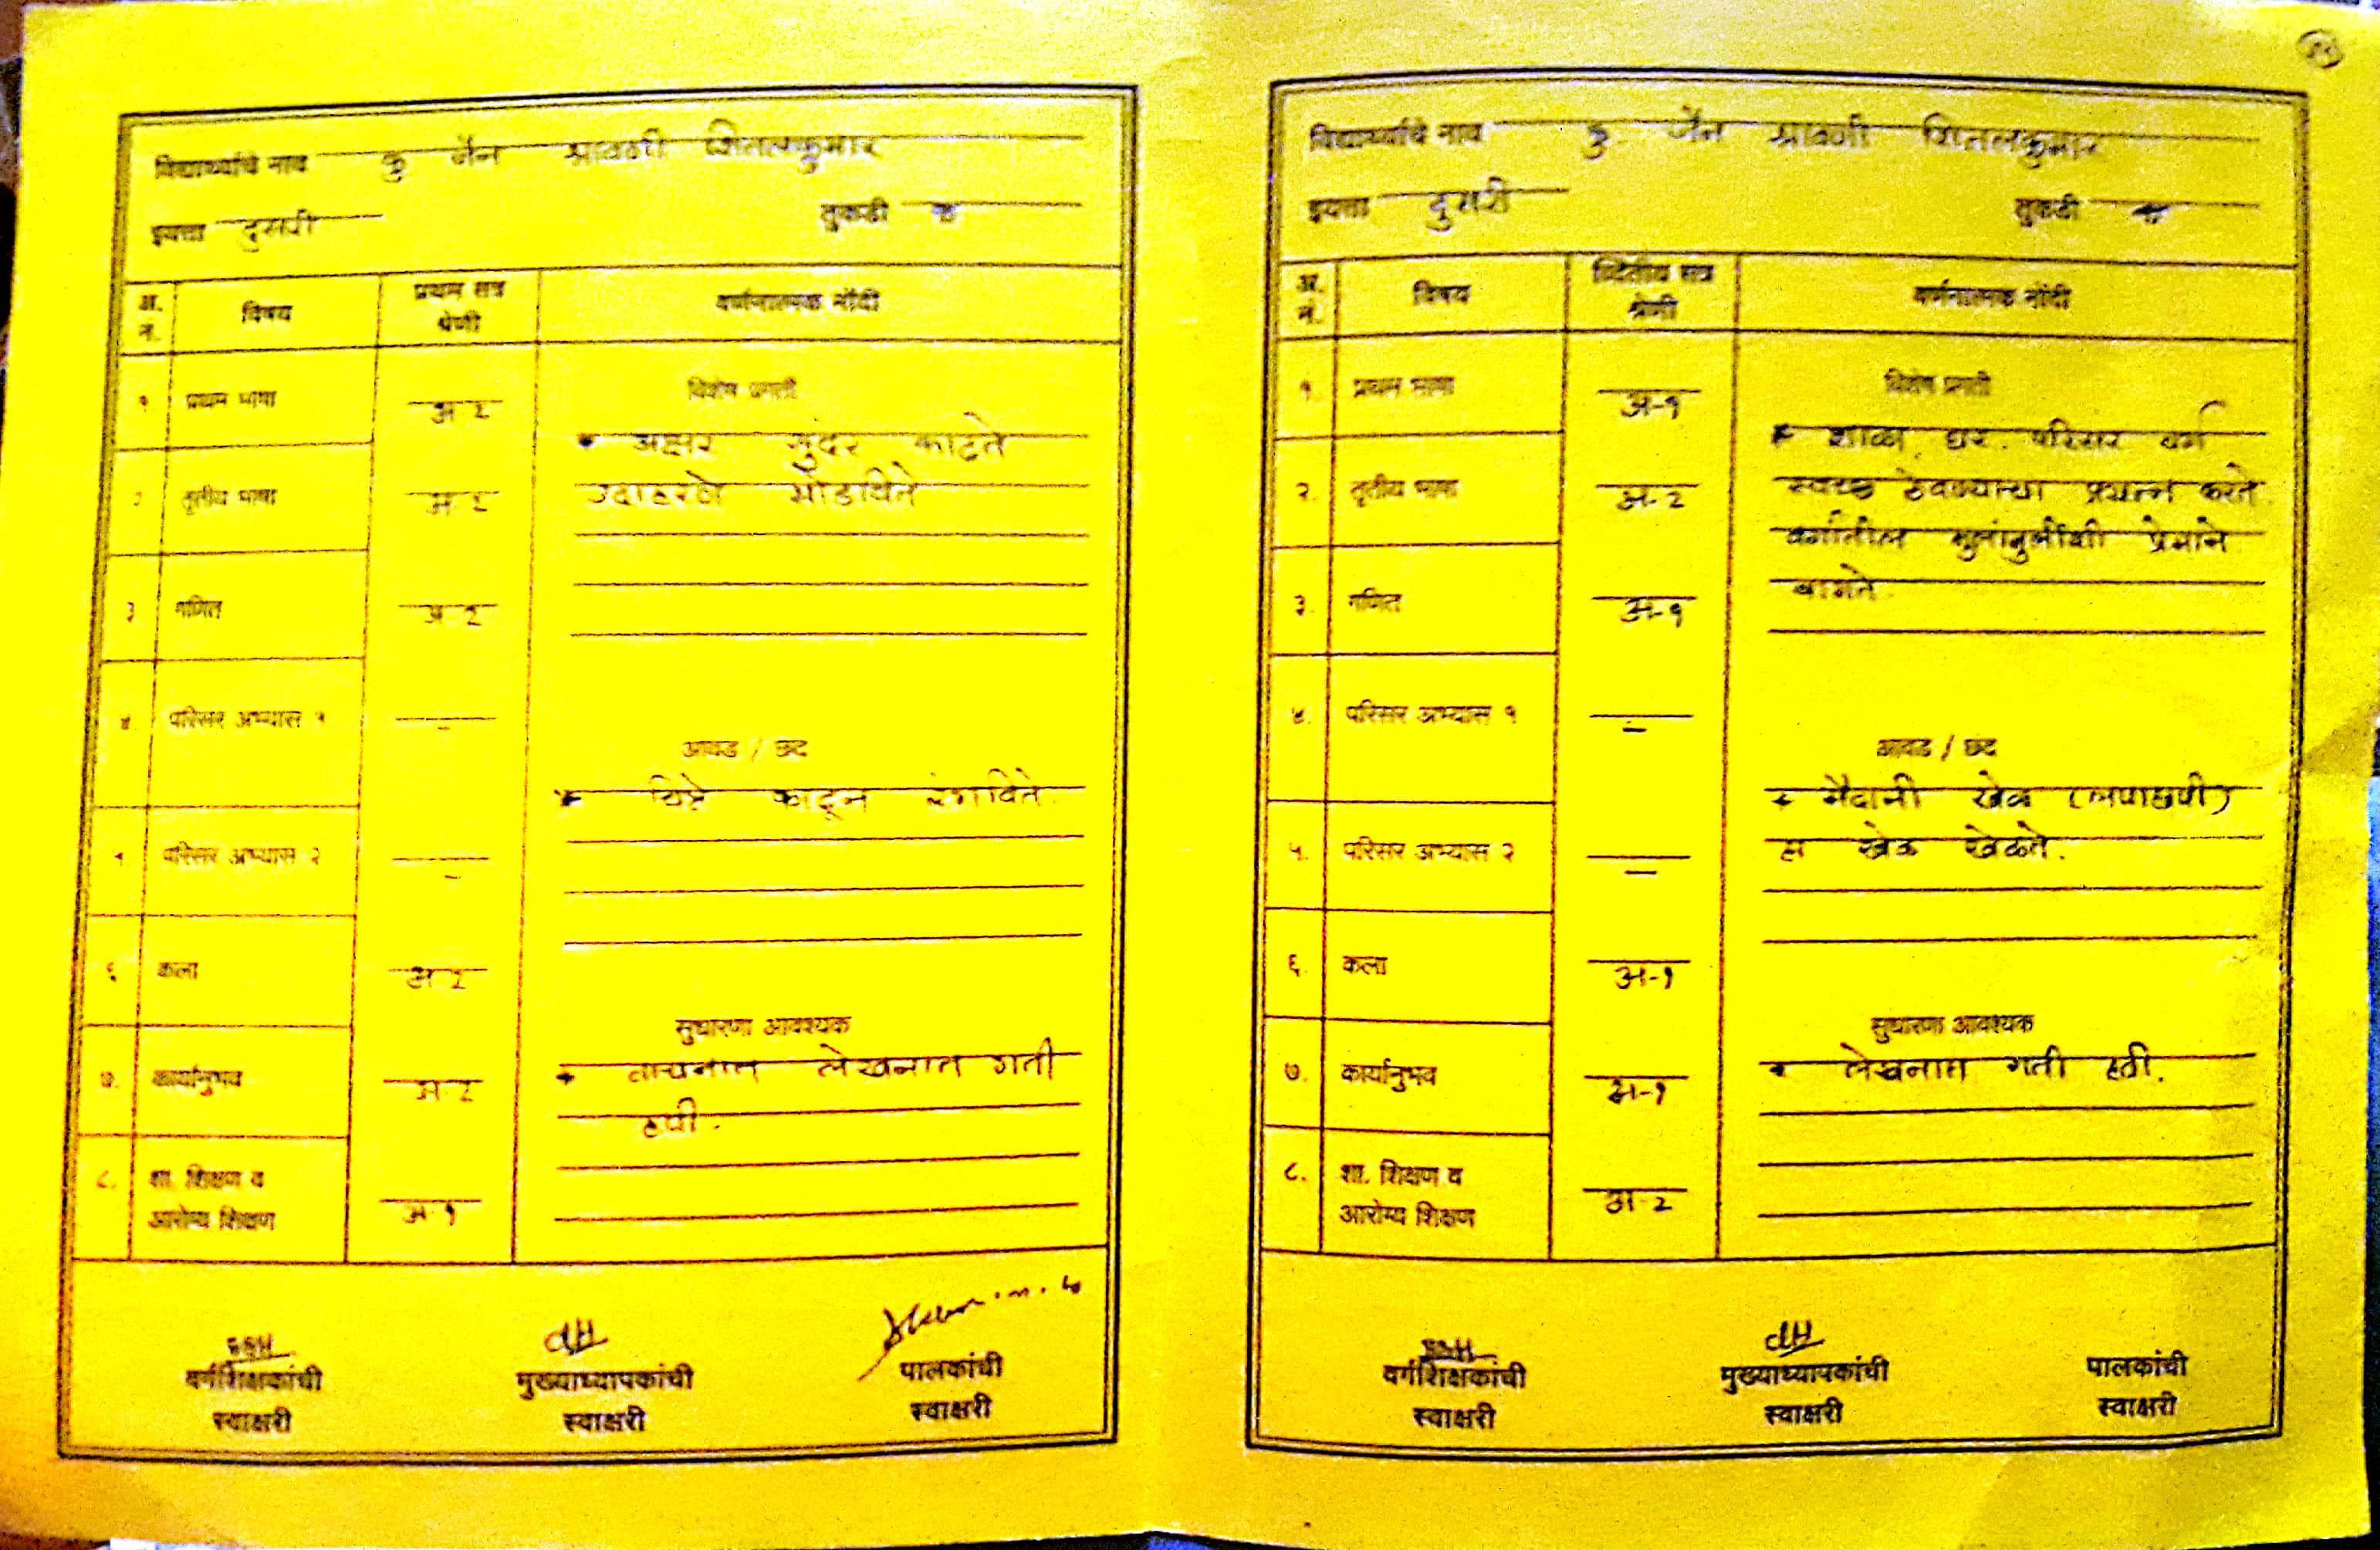 विद्यार्थ्याचे नाव कु जैन श्रावणी शितलकुमार
इयत्ता दुसरी तुकडी क
अ. न. विषय प्रथम सत्र श्रेणी वर्णनात्मक नोंदी
१ प्रथम भाषा अ-२
विशेष प्रगती
* अक्षर सुंदर काढते
उदाहरणे सोडविते
२ तृतीय भाषा अ-२
३ गणित अ-२
४ परिसर अभ्यास १ -
आवड / छंद
* चित्रे काढून रंगविते.
५ परिसर अभ्यास २ -
६ कला अ-२
सुधारणा आवश्यक
* वाचनात लेखनात गती
हवी.
७. कार्यानुभव अ-२
८. शा. शिक्षण व
आरोग्य शिक्षण अ-१
वर्गशिक्षकांची मुख्याध्यापकांची पालकांची
स्वाक्षरी स्वाक्षरी स्वाक्षरी
विद्यार्थ्याचे नाव कु. जैन श्रावणी शितलकुमार
इयत्ता दुसरी तुकडी क
अ. न. विषय द्वितीय सत्र श्रेणी वर्णनात्मक नोंदी
१. प्रथम भाषा अ-१
विशेष प्रगती
* शाळा, घर, परिसर वर्ग
स्वच्छ ठेवण्याचा प्रयत्न करते.
वर्गातील मुलांमुलींशी प्रेमाने
वागते.
२. तृतीय भाषा अ-२
३. गणित अ-१
४. परिसर अभ्यास १ -
आवड / छंद
* मैदानी खेळ (लपाछपी)
हा खेळ खेळते.
५. परिसर अभ्यास २ -
६. कला अ-१
सुधारणा आवश्यक
* लेखनात गती हवी.
७. कार्यानुभव अ-१
८. शा. शिक्षण व
आरोग्य शिक्षण अ-२
वर्गशिक्षकांची मुख्याध्यापकांची पालकांची
स्वाक्षरी स्वाक्षरी स्वाक्षरी